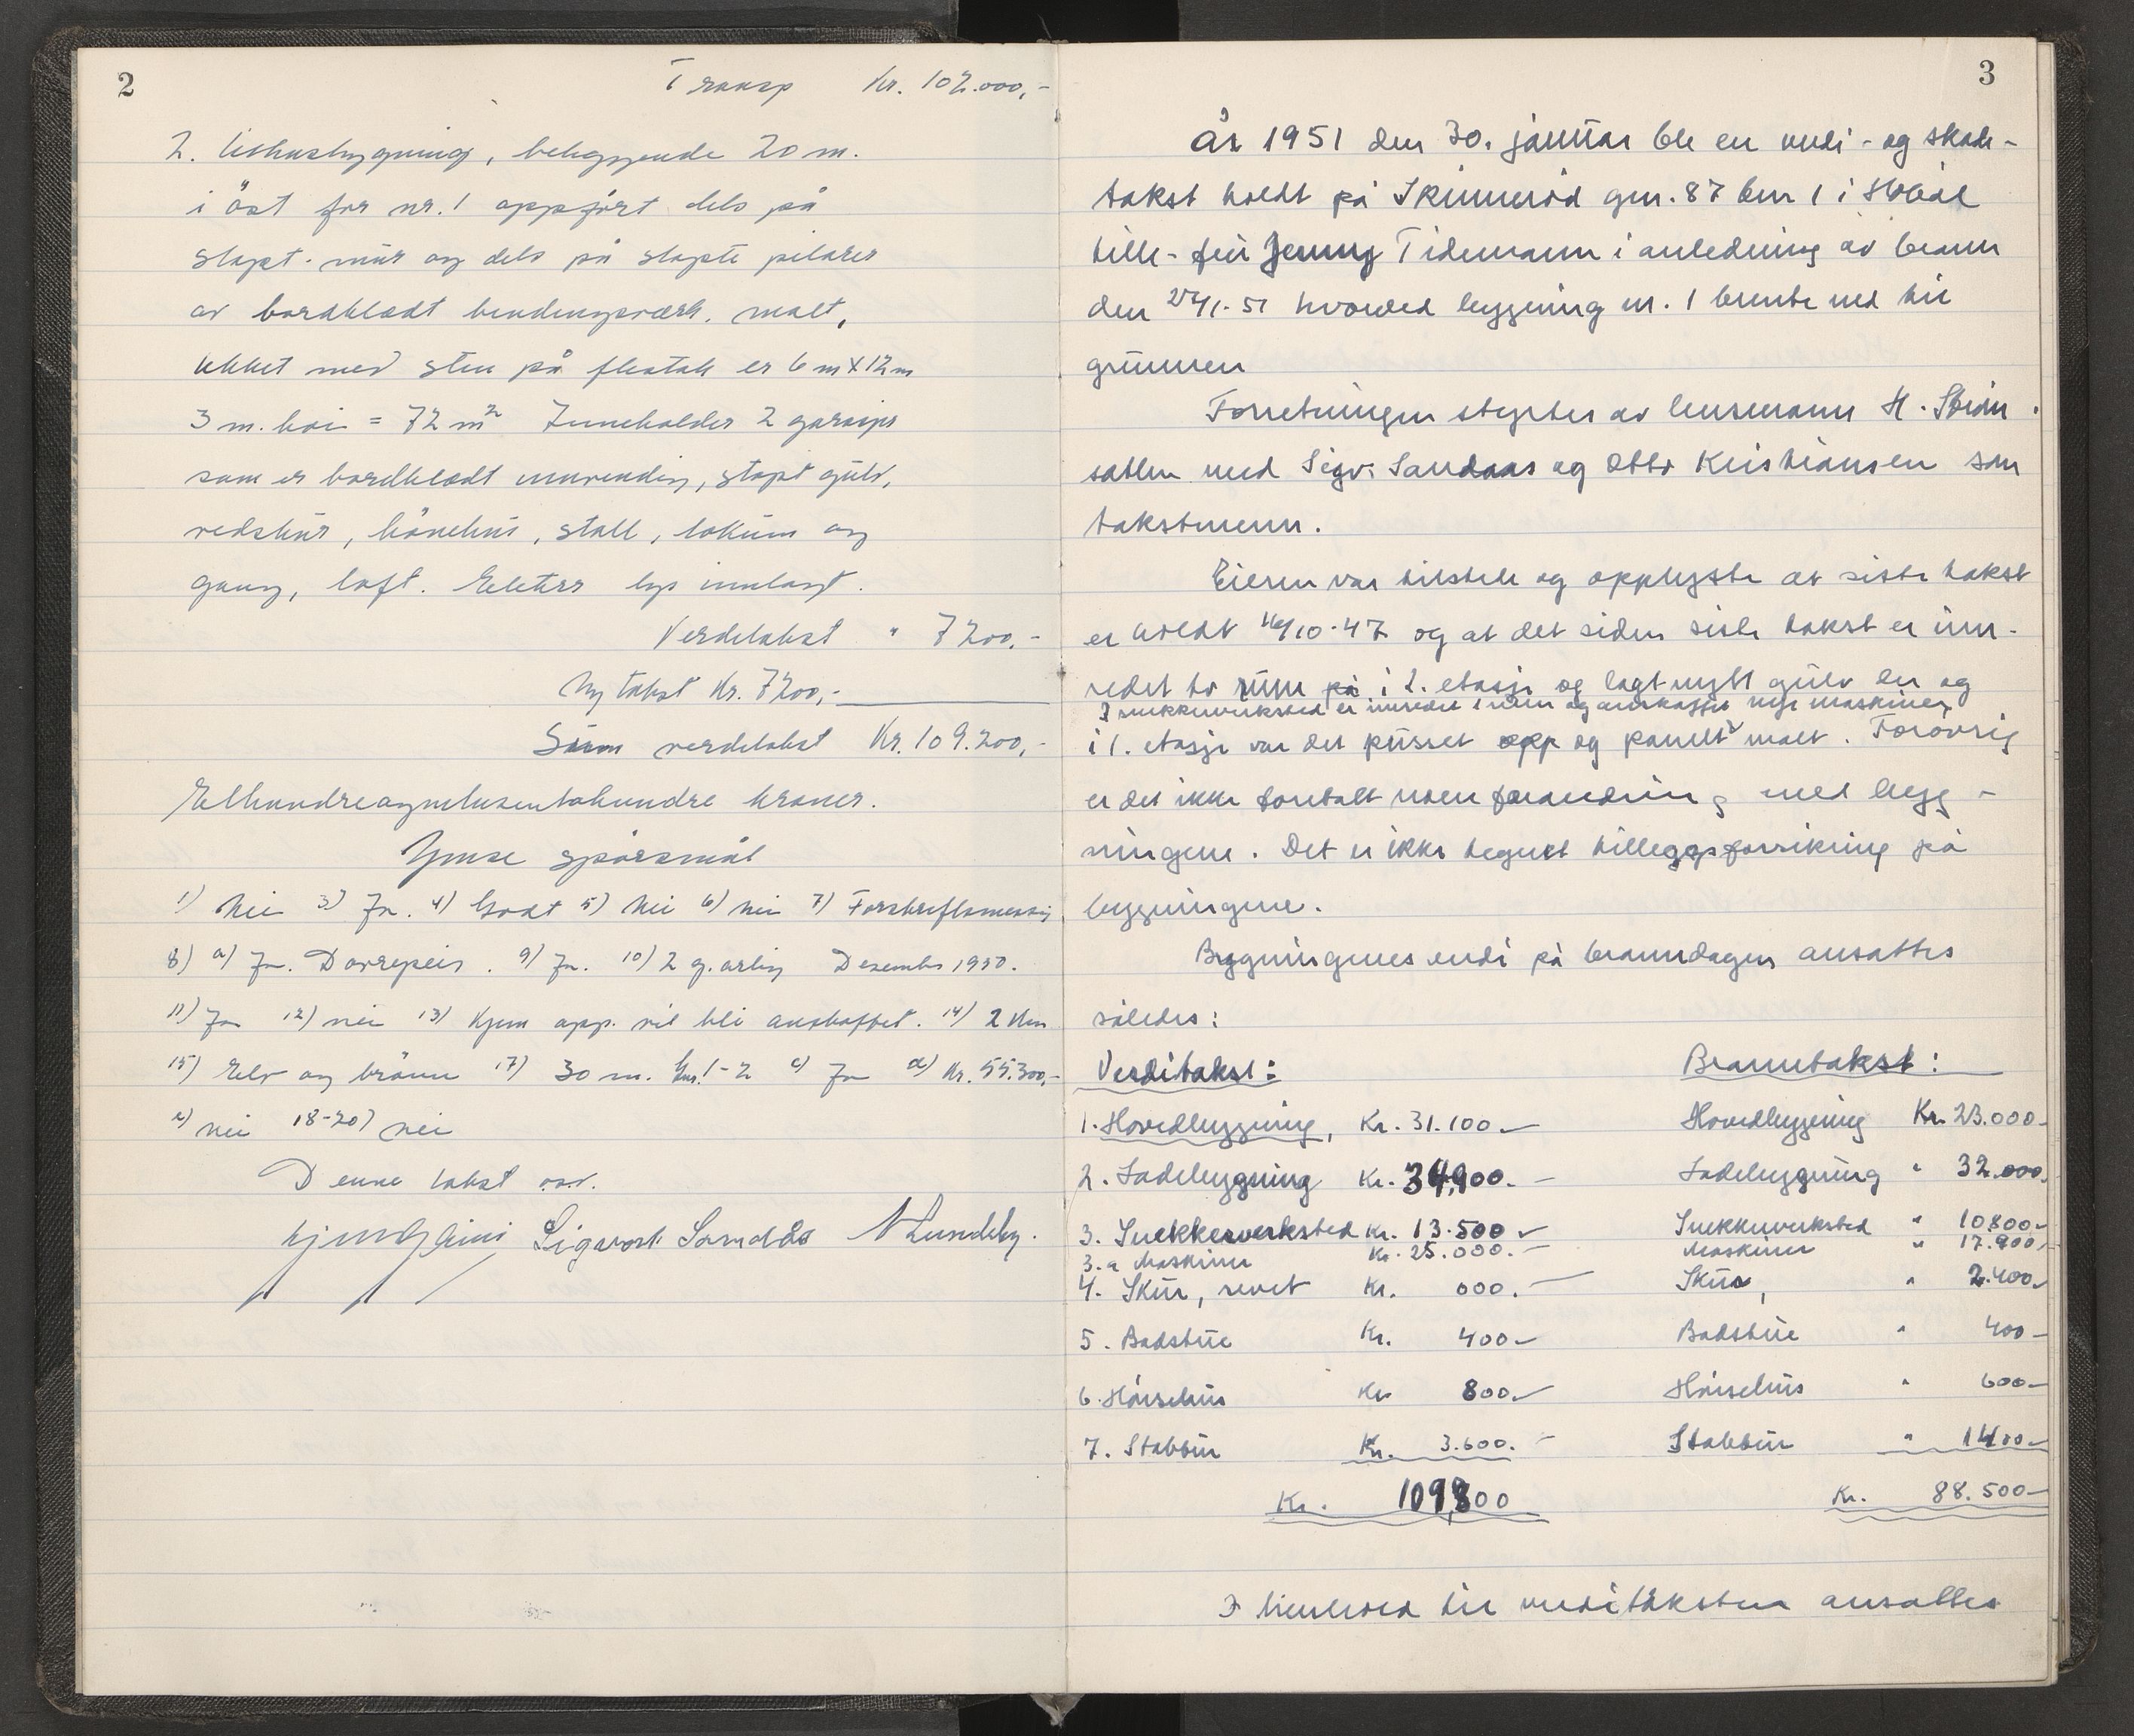 2
Transp Kr. 102.000,-
2. Uthusbygning, beliggende 20 m.
i öst for nr. 1 oppfört dels på
stöpt mur og dels på stöpte pilarer
av bordkledt bindingsverk, malt,
tekket med sten på flatak er 6 m x 12 m
3 m. höi = 72 m² Inneholder 2 garasjer
som er bordkledt innvendig, stöpt gulv,
vedskur, hönehus, stall, lokum og
gang, loft. Elektr lys innlagt.
Verditakst " 7200,-
Ny takst Kr. 7200,-
Sum verditakst Kr. 109.200,-
Etthundreognitusentohundre kroner.
Ymse spörsmål
1) Nei 3) Ja. 4) Godt 5) Nei 6) nei 7) Forskriftsmessig
8) a) Ja. Dovrepeis. 9) Ja. 10) 2 g. årlig Desember 1950.
11) Ja 12) nei 13) Kjem app. vil bli anskaffet. 14) 2 km
15) Elv og brönn 17) 30 m. Gnr. 1-2 c) Ja d) Kr. 55.300,-
e) nei 18-20) nei
Denne takst osv.
Sigvart Sandås N Lundeby.
3
År 1951 den 30. januar ble en verdi- og skade-
takst holdt på Skinneröd gnr. 87 bnr 1 i Hobøl
tilh. fru Jenny Tidemann i anledning av brann
den 27/1-51 hvorved bygning nr. 1 brente ned til
grunnen
Forretningen styrtes av lensmann H.
med Sigv. Sandaas og Otto Kristiansen som
takstmenn.
Eieren var tilstede og opplyste at siste takst
er holdt 16/10-47 og at det siden siste takst er inn-
redet to rum på i 2. etasje og lagt nytt gulv der og
I snekkerverksted er innredet 1 rum og anskaffet nye maskiner,
i 1. etasje var det pusset opp og panelt malt. Forövrig
er det ikke foretatt noen forandring med bygg-
ningene. Det er ikke tegnet tilleggsforsikring på
byggningene.
Byggningenes verdi på branndagen ansattes
således:
Verditakst: Branntakst:
1. Hovedbyggning, Kr. 31.100 - Hovedbyggning Kr. 23.000-
2. Ladebyggning Kr. 34,900. - Ladebyggning " 32.000.
3. Snekkerverksted Kr. 13.500 - Snekkerverksted " 10800-
3.a Maskiner Kr. 25.000. - Maskiner " 17.900-
4. Skur, revet Kr. 000. - Skur, " 2.400-
5. Badstue Kr. 400- Badstue " 400-
6. Hönsehus Kr 800- Hönsehus " 600-
7. Stabbur Kr. 3.600. - Stabbur " 1400-
Kr. 109,300 Kr. 88.500-
I henhold til verditaksten ansattes